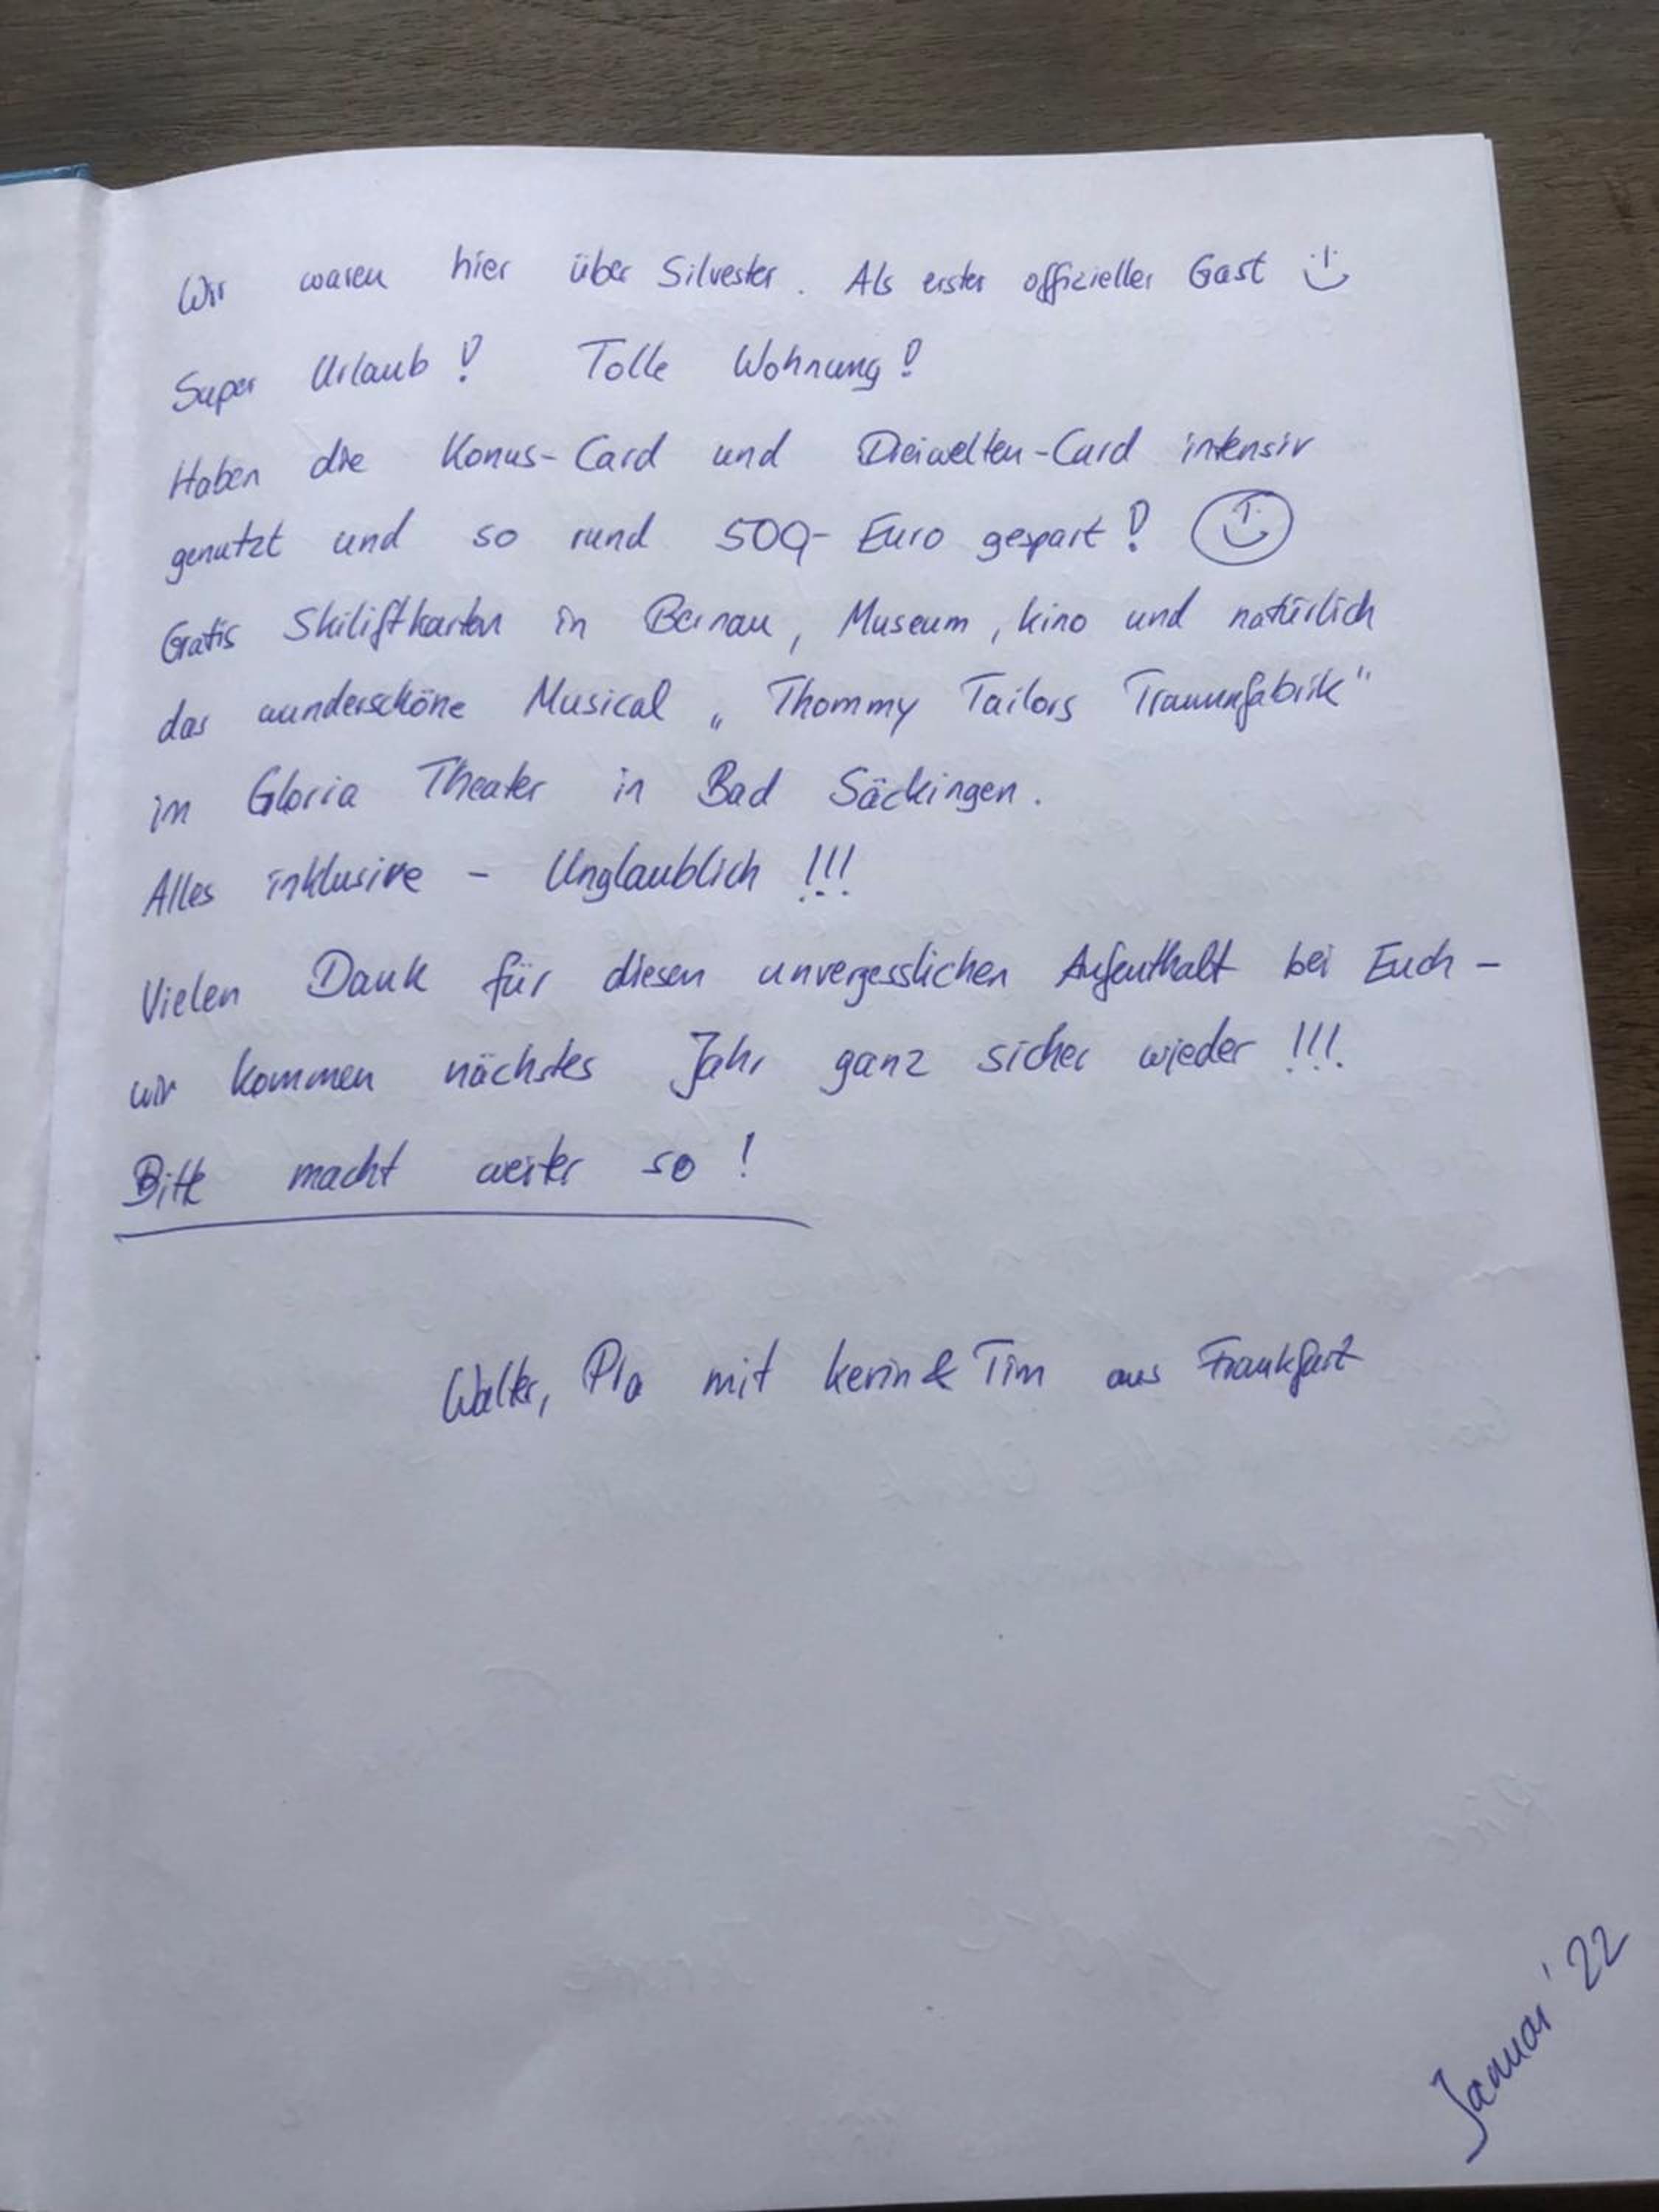 Wir waren hier über Silvester. Als erster offizieller Gast
Super Urlaub! Tolle Wohnung!
Haben die Konus-Card und Dreiwelten-Card intensiv
genutzt und so rund 500,- Euro gespart!
Gratis Skiliftkarten in Bernau, Museum, Kino und natürlich
das wunderschöne Musical „Thommy Tailors Traumfabrik"
im Gloria Theater in Bad Säckingen.
Alles inklusive - Unglaublich !!!
Vielen Dank für diesen unvergesslichen Aufenthalt bei Euch -
wir kommen nächstes Jahr ganz sicher wieder !!!
Bitte macht weiter so!
Walter, Pia mit Kevin & Tim aus Frankfurt
Januar '22